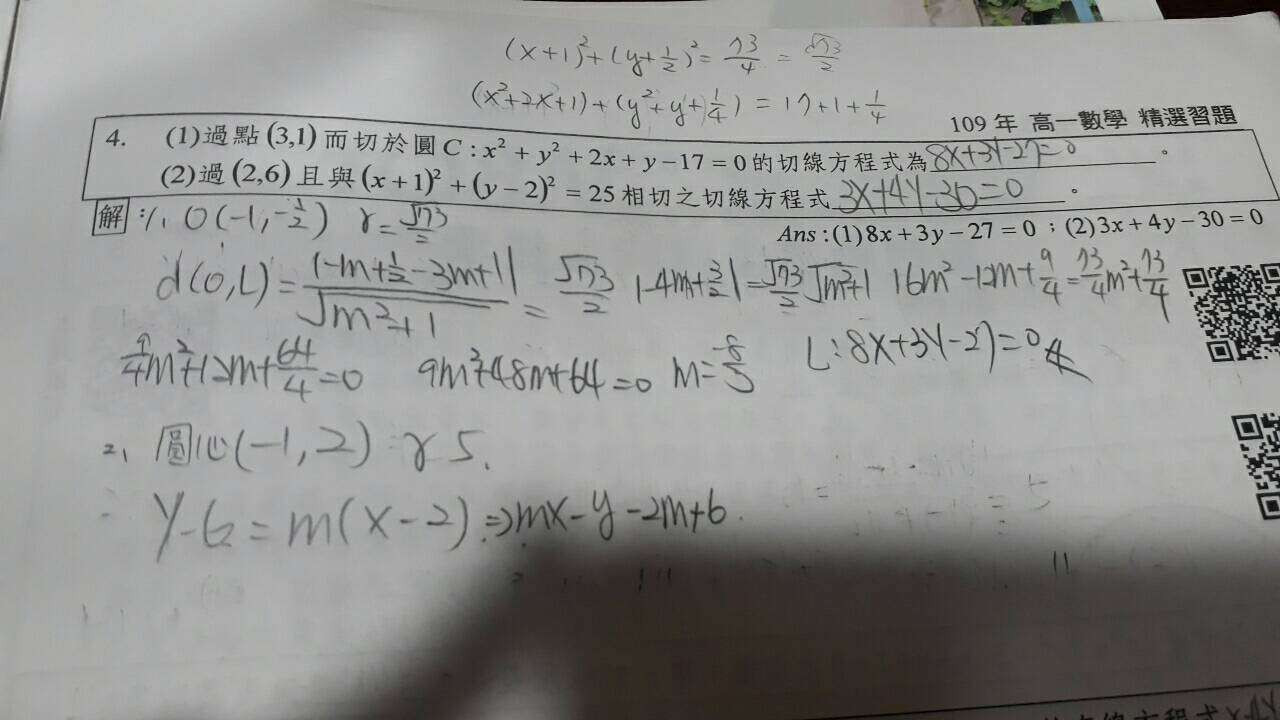 (x+1)²+(y+½)²=73/4 = √73/2
(x²+2x+1)+(y²+y+¼) = 17+1+¼
109年 高一數學 精選習題
4. (1)過點(3,1)而切於圓C:x²+y²+2x+y−17=0的切線方程式為 8x+3y-27=0 。
(2)過(2,6)且與(x+1)²+(y−2)²=25相切之切線方程式 3x+4y-30=0 。
Ans:(1)8x+3y−27=0;(2)3x+4y−30=0
解: 1. O(-1,-½) r=√73/2
d(O,L)=|-m+½-3m+1|/√m²+1 = √73/2 |-4m+3/2|=√73/2 √m²+1 16m²-12m+9/4=73/4m²+73/4
9/4m²+12m+64/4=0 9m²+48m+64=0 m=-8/3 L:8x+3y-27=0
2. 圓心(-1,2) r 5.
y-6=m(x-2)⇒mx-y-2m+6